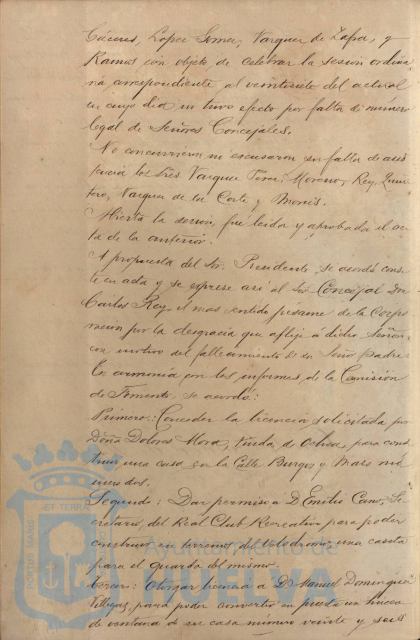 Cáceres, Lopez Gomez, Vazquez de Zafra, y
Ramos con objeto de celebrar la sesión ordina
ria correspondiente al veintisiete del actual
en cuyo dia no tuvo efecto por falta de numero
legal de Señores Concejales.
No concurrieron ni escusaron su falta de asis
tencia los Sres Vazquez Perez, Moreno, Rey, Quin
tero, Vazquez de la Corte y Monis.
Abierta la sesión, fue leida y aprobada el ac
ta de la anterior.
A propuesta del Sr. Presidente se acordó cons
te en acta y se exprese así al Sr Concejal Don
Carlos Rey el mas sentido pesame de la Corpo
ración por la desgracia que aflije a dicho Señor
con motivo del fallecimiento de su Señor padre.
En armonia con los informes de la Comisión
de Fomento se acordó:
Primero: Conceder la licencia solicitada por
Doña Dolores Mora, Viuda de Ochoa, para cons
truir una casa en la Calle Burgos y Mazo nú
mero dos.
Segundo: Dar permiso a D. Emilio Cano, Se
cretario del Real Club Recreativo para poder
construir en terrenos del Velodromo una caseta
para el guarda del mismo.
Tercero: Otorgar licencia a D. Manuel Dominguez
Villegas, para poder convertir en puerta un hueco
de ventana de su casa número veinte y seis
Ayuntamiento de
HUELVA
PORTUS MARIS
ET TERRAE